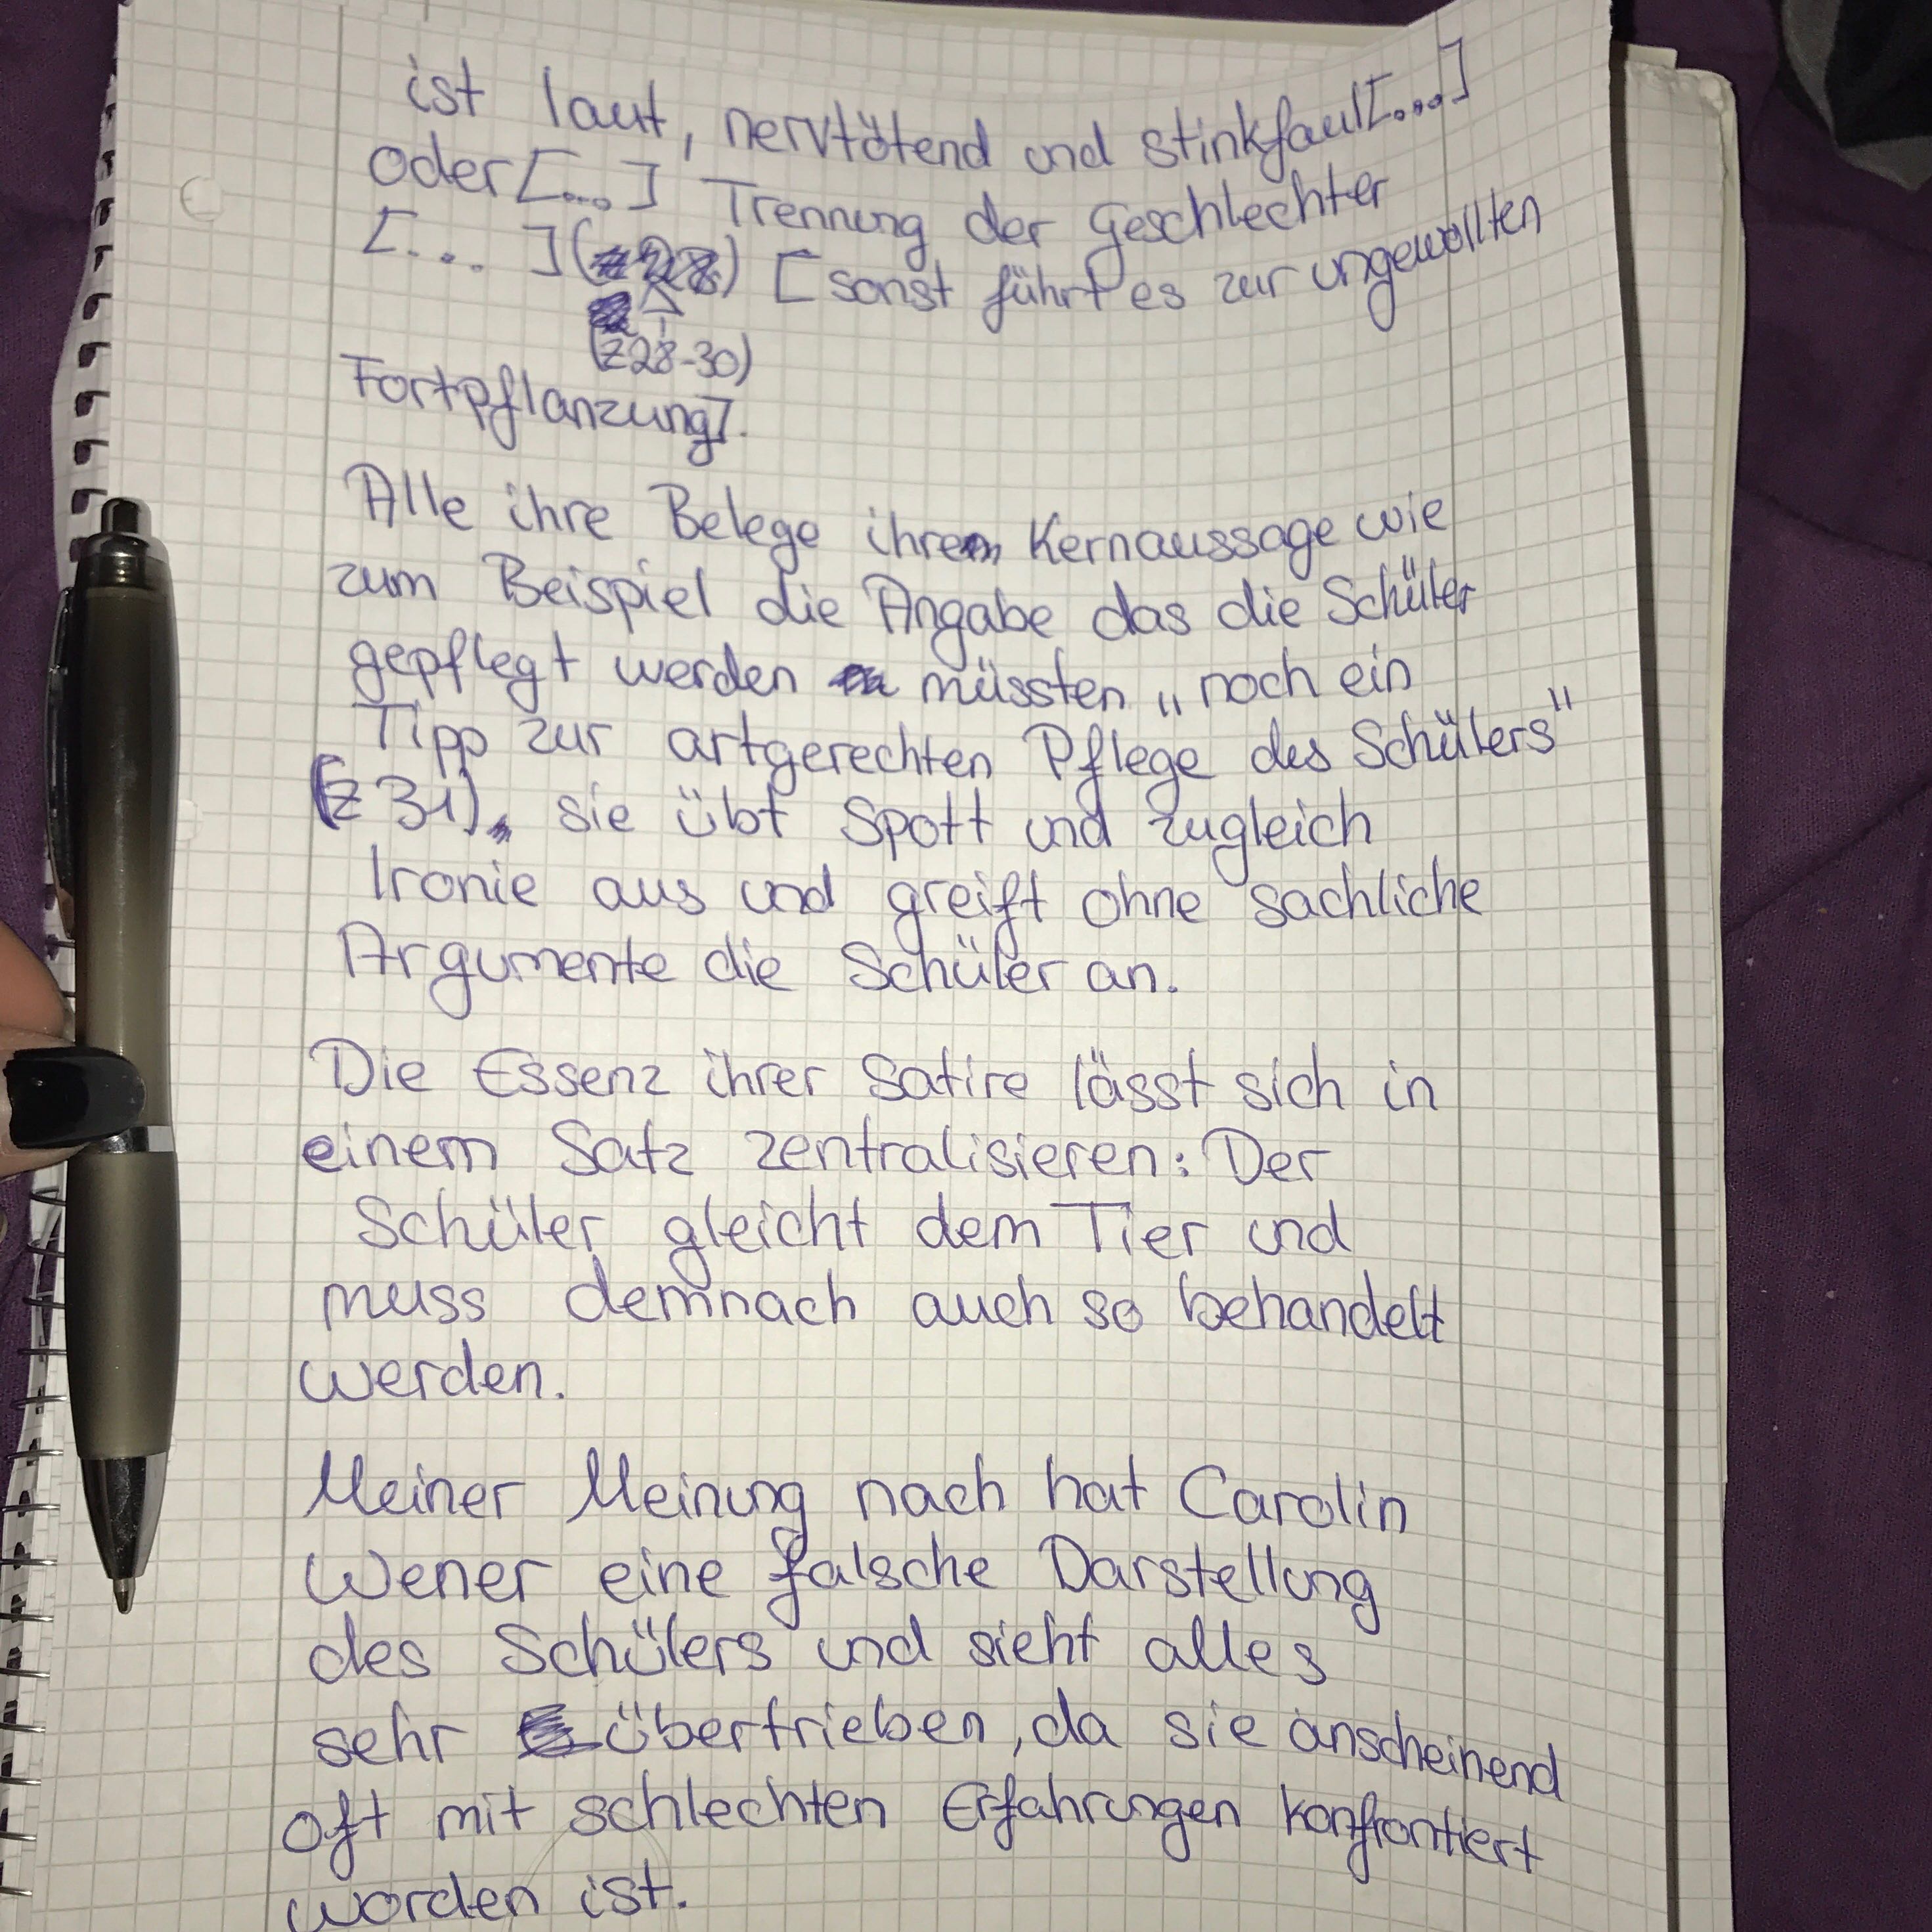 ist laut, nervtötend und stinkfaul[....]
oder[...] Trennung der Geschlechter
[... ](z28) [sonst führt es zur ungewollten
(z28-30)
Fortpflanzung].
Alle ihre Belege ihrem Kernaussage wie
zum Beispiel die Angabe das die Schüler
gepflegt werden müssten „noch ein
Tipp zur artgerechten Pflege des Schülers"
(z 31), sie übt Spott und zugleich
Ironie aus und greift ohne sachliche
Argumente die Schüler an.
Die Essenz ihrer Satire lässt sich in
einem Satz zentralisieren: Der
Schüler gleicht dem Tier und
muss demnach auch so behandelt
werden.
Meiner Meinung nach hat Carolin
Wener eine falsche Darstellung
des Schülers und sieht alles
sehr übertrieben, da sie anscheinend
oft mit schlechten Erfahrungen konfrontiert
worden ist.